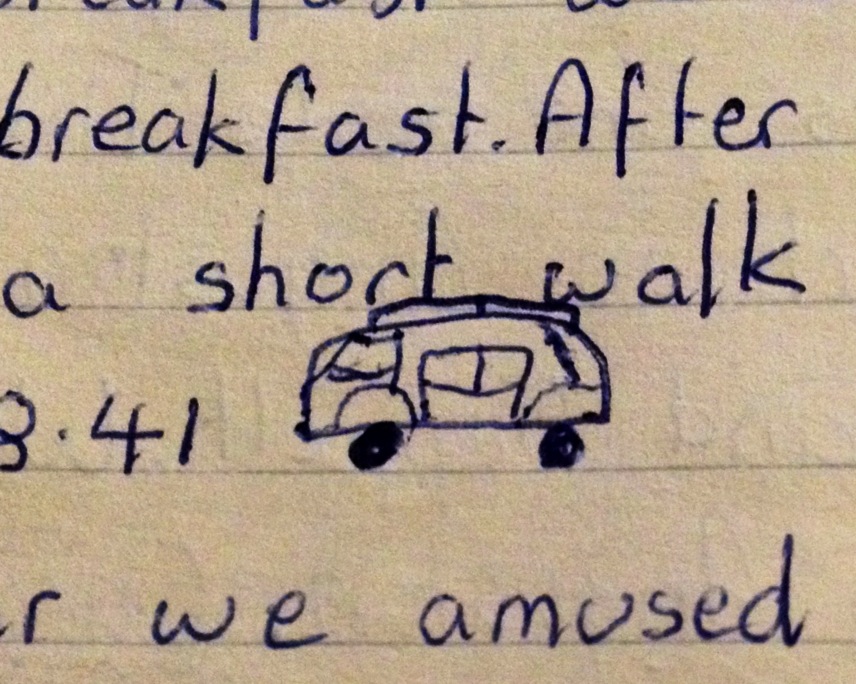 breakfast. After
a short walk
8.41
we amused